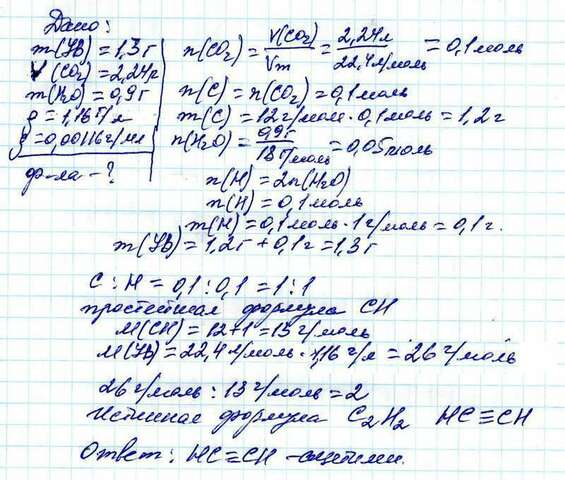 Дано:
m(УВ) = 1,3 г
V(CO₂) = 2,24л
m(H₂O) = 0,9 г
ρ = 1,16 г/л
ρ = 0,00116 г/мл
ф-ла - ?
n(CO₂) = V(CO₂)/Vm = 2,24л/22,4л/моль = 0,1 моль
n(C) = n(CO₂) = 0,1 моль
m(C) = 12 г/моль · 0,1 моль = 1,2 г
n(H₂O) = 0,9 г/18 г/моль = 0,05 моль
n(H) = 2n(H₂O)
n(H) = 0,1 моль
m(H) = 0,1 моль · 1 г/моль = 0,1 г.
m(УВ) = 1,2 г + 0,1 г = 1,3 г
C : H = 0,1 : 0,1 = 1 : 1
простейшая формула CH
M(CH) = 12+1 = 13 г/моль
M(УВ) = 22,4 л/моль · 1,16 г/л = 26 г/моль
26 г/моль : 13 г/моль = 2
Истинная формула C₂H₂ HC≡CH
Ответ: HC≡CH - ацетилен.